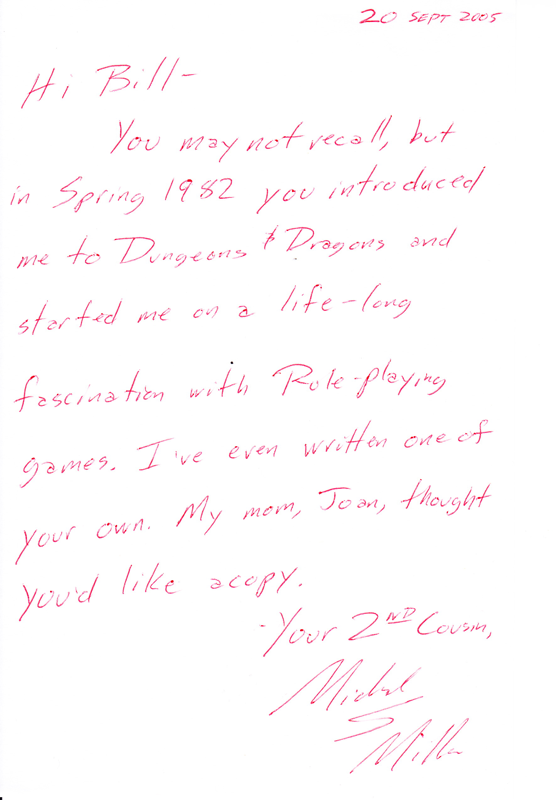 20 SEPT 2005
Hi Bill-
You may not recall, but
in Spring 1982 you introduced
me to Dungeons & Dragons and
started me on a life-long
fascination with Role-playing
games. I've even written one of
your own. My mom, Joan, thought
you'd like a copy.
-Your 2ND Cousin,
Michael
S
Miller